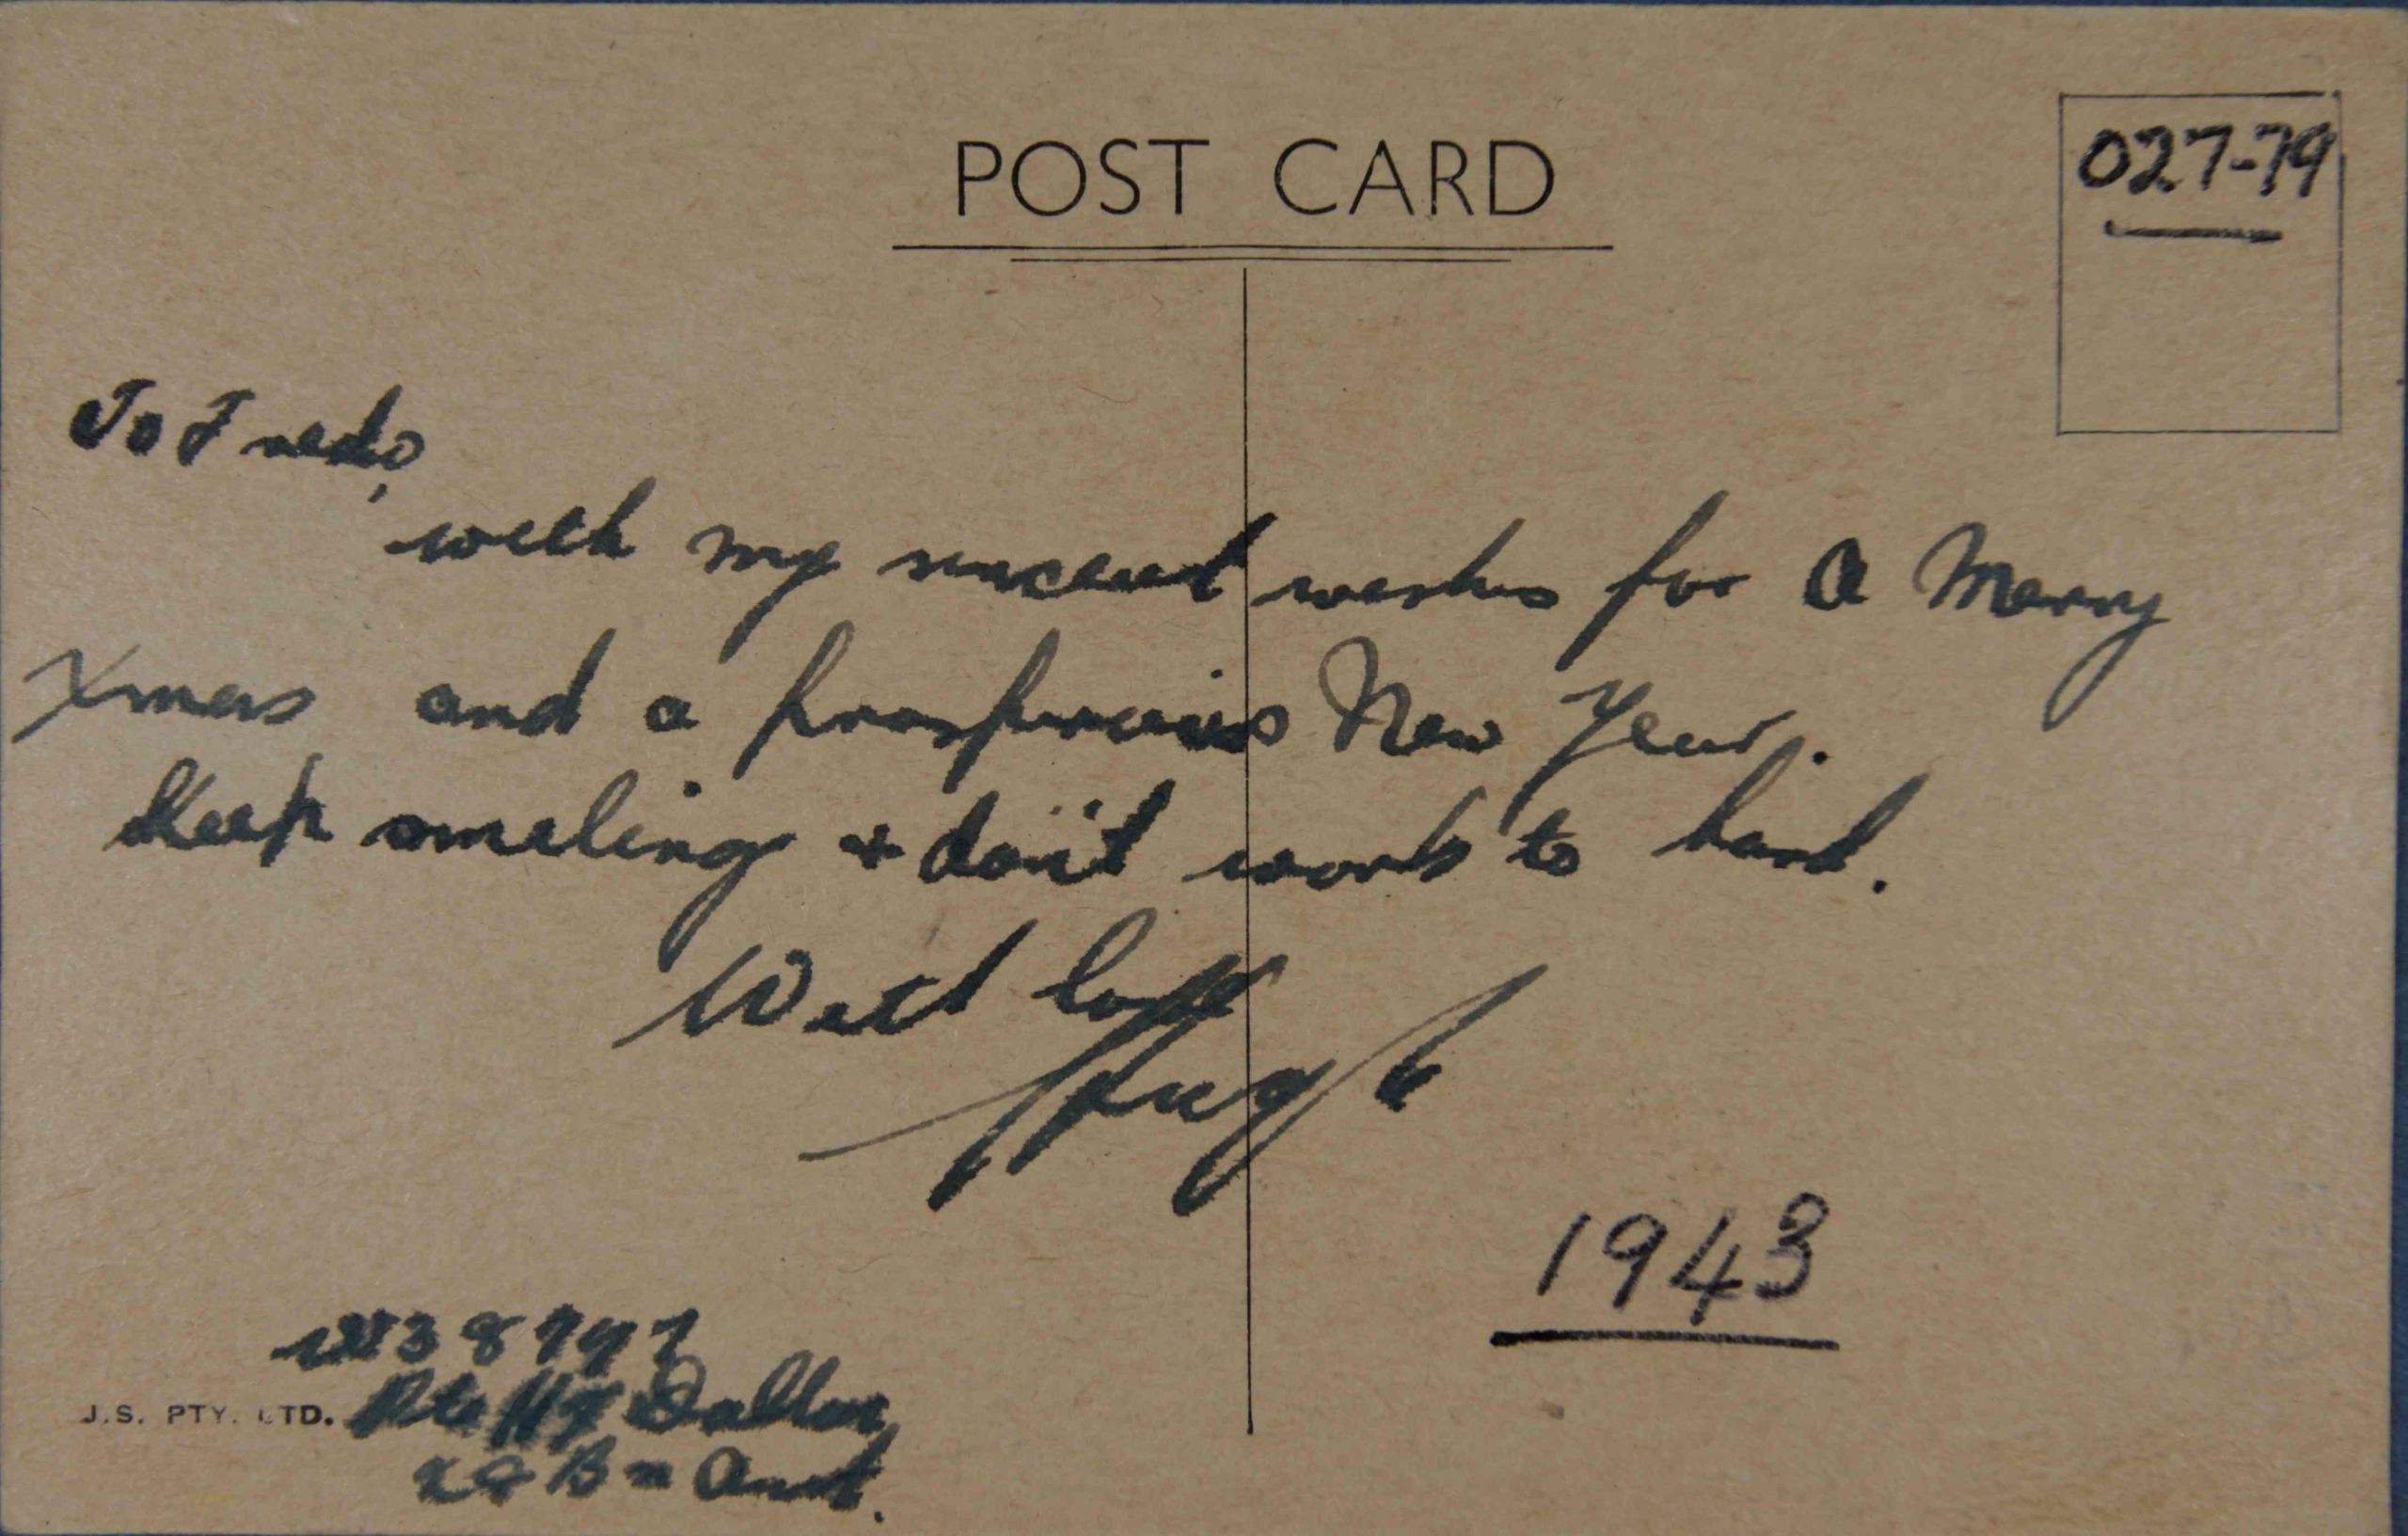 POST CARD
027-79
To Freda,
with my sincerest wishes for a Merry
Xmas and a prosperous New Year.
Keep smiling + don't work to hard.
With love
Hugh
1943
Pte H
J.S. PTY. LTD.
Bn Aust.